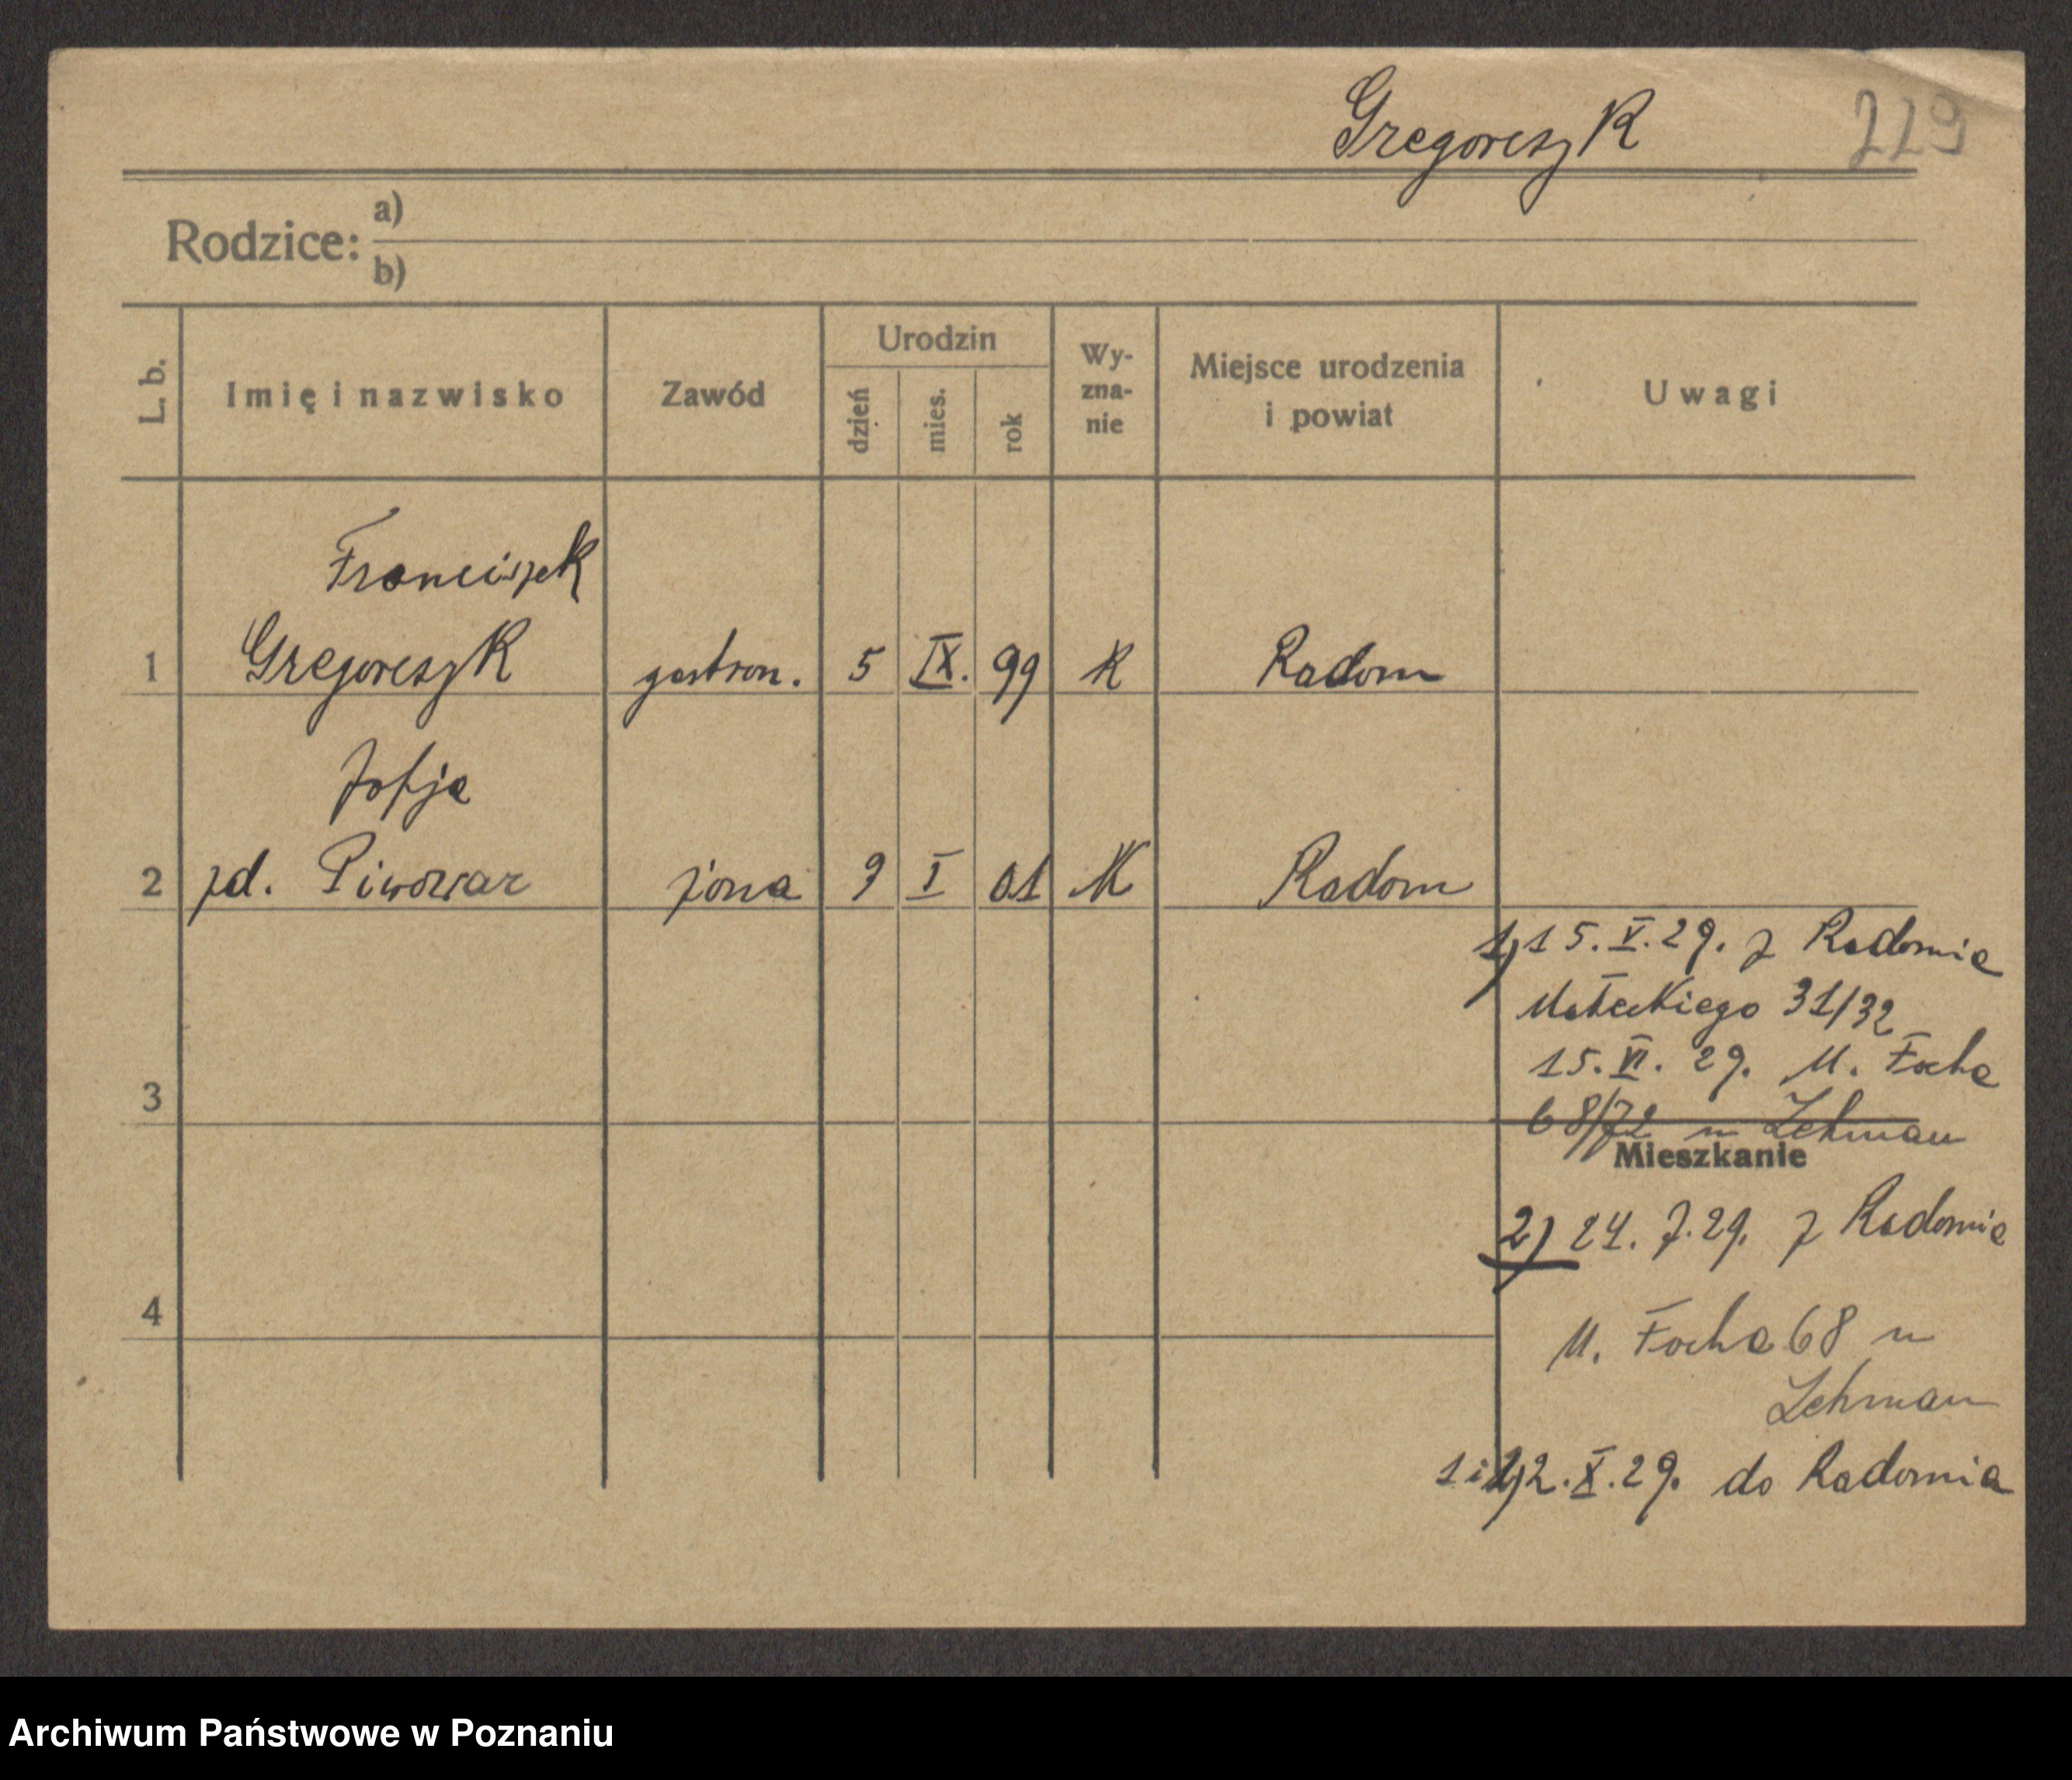 Gregoreszyk 229
Rodzice: a)
b)
L. b. Imię i nazwisko Zawód Urodzin dzień mies. rok Wy-zna-nie Miejsce urodzenia i powiat Uwagi
Franciszek
1 Gregoreszyk gastron. 5 IX. 99 K Radom
Zofja
2 zd. Piwowar żona 9 I 01 K Radom
1) 15. V. 29. z Radomia
Małeckiego 31/32
15. VI. 29. M. Focha
3
68/72 u Lehman
Mieszkanie
2) 24. 7. 29. z Radomia
4
M. Focha 68 u
Lehman
1 i 2) 2. X. 29. do Radomia
Archiwum Państwowe w Poznaniu